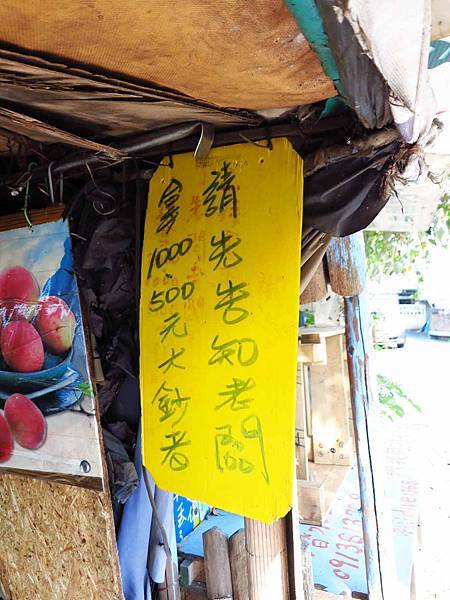 拿1000.500元大鈔者
請先告知老闆